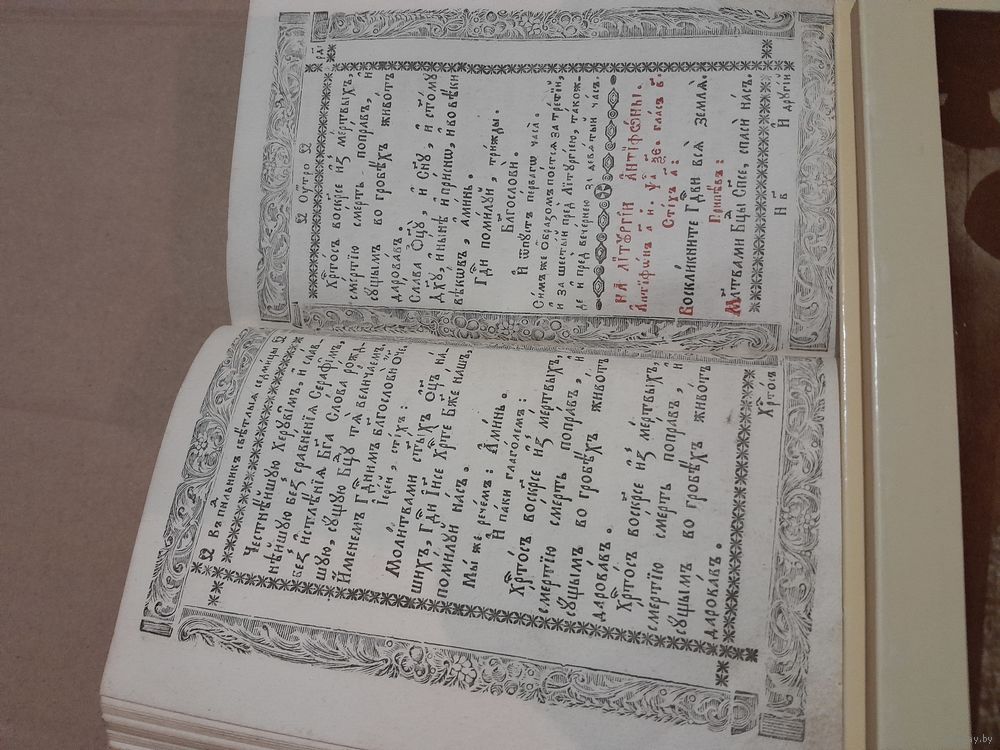 Въ понᲁдѣльникъ свѣтлыѧ седмицы
Честнѣйшую Херꙋвімъ, и слав
нѣйшую без̾ сравненїѧ Серафїмъ,
без̾ истлѣнїѧ Бг҃а Слова рожд̾
шую, сꙋщую Бц҃ꙋ тѧ величаемъ,
Именемъ Гд҇нимъ благослови ѻч҃е,
Іерей, стїхъ:
Молитвами ст҃ыхъ ѻц҃ъ на́
шихъ, Гд҇и Іисе Хр҇те Бж҃е нашъ,
помилꙋй насъ.
Мы же речемъ: Аминь.
И паки глаголемъ:
Хр҇тосъ воскр҃се из̾ мертвыхъ
смертїю смерть поправъ, и
сꙋщымъ во гробѣхъ животъ
даровавъ.
Хр҇тосъ воскр҃се из̾ мертвыхъ,
смертїю смерть поправъ, и
сꙋщымъ во гробѣхъ животъ
даровавъ.
Хр҇тосъ
Оутро
рд҃і
Хр҇тосъ воскр҃се из̾ мертвыхъ,
смертїю смерть поправъ, и
сꙋщымъ во гробѣхъ животъ
даровавъ.
Слава Оц҃ꙋ, и Сн҃ꙋ, и ст҃омꙋ
Дх҃ꙋ, и нынѣ и приснѡ, и во вѣки
вѣкѡвъ, аминь.
Гд҇и помилꙋй, трижды.
Благослови.
И ѿпꙋстъ первагѡ часа.
Симъ же образомъ поютсѧ за третїй,
и за шестый пред̾ Літꙋргїею, також-
де и пред̾ вечернею за девѧтый часъ.
НА ЛІТꙊРГІИ АНТІФѠНЫ.
Антїфѡнъ а҃ и. ѱа. гласъ в҃.
Стїхъ а҃:
Воскликните Гд҇ви всѧ землѧ.
Припѣвъ:
Мл҃твами Бц҃ы Сп҃се, спаси насъ.
И другїи